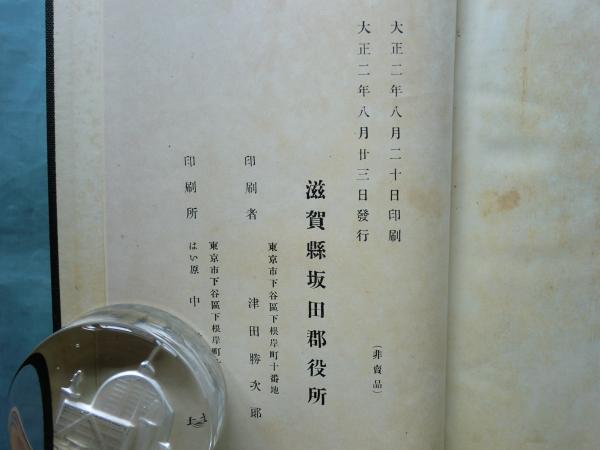 大正二年八月二十日印刷
大正二年八月廿三日發行
（非賣品）
滋賀縣坂田郡役所
東京市下谷區下根岸町十番地
印刷者 津田勝次郎
東京市下谷區下根岸町十
印刷所 はい原 中